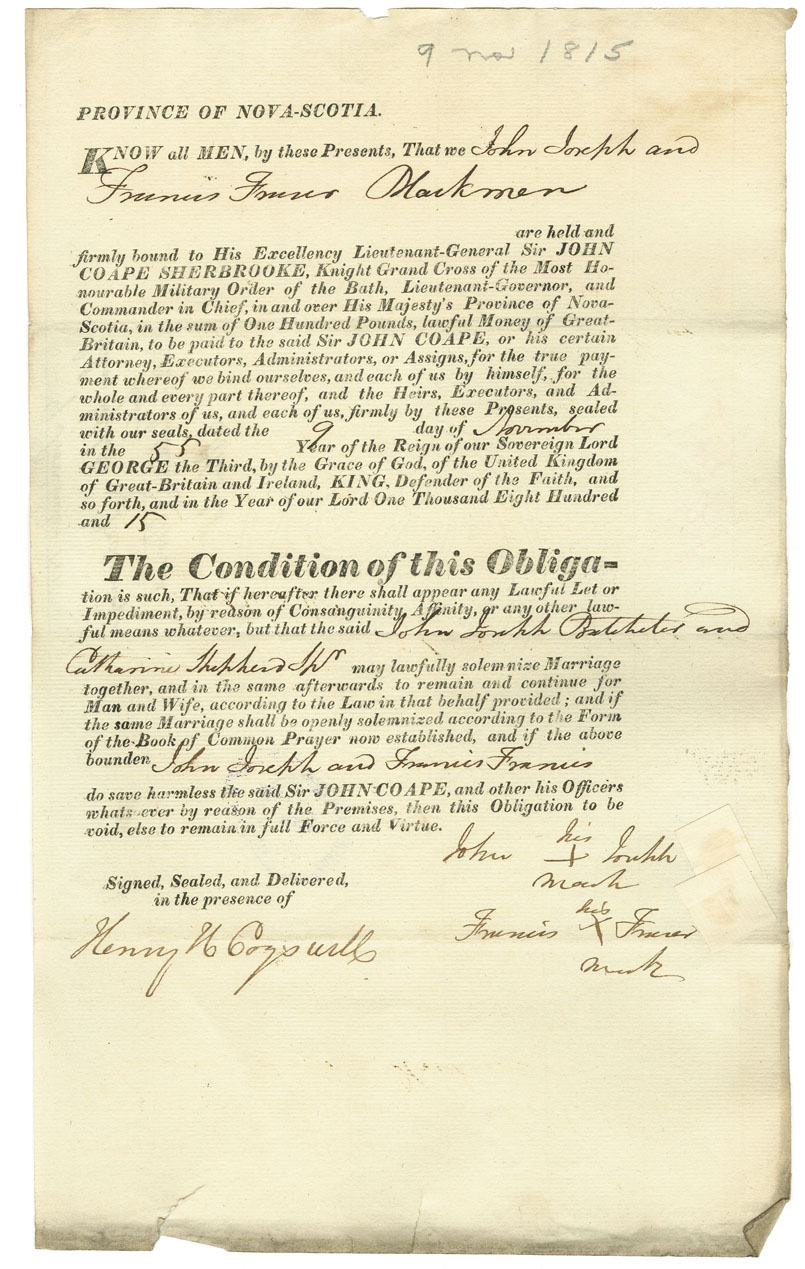 9 Nov 1815
PROVINCE OF NOVA-SCOTIA.
KNOW all MEN, by these Presents, That we John Joseph and
Francis Fraser Blackmen
are held and
firmly bound to His Excellency Lieutenant-General Sir JOHN
COAPE SHERBROOKE, Knight Grand Cross of the Most Ho-
nourable Military Order of the Bath, Lieutenant-Governor, and
Commander in Chief, in and over His Majesty's Province of Nova-
Scotia, in the sum of One Hundred Pounds, lawful Money of Great-
Britain, to be paid to the said Sir JOHN COAPE, or his certain
Attorney, Executors, Administrators, or Assigns, for the true pay-
ment whereof we bind ourselves, and each of us by himself, for the
whole and every part thereof, and the Heirs, Executors, and Ad-
ministrators of us, and each of us, firmly by these Presents, sealed
with our seals, dated the 9 day of November
in the 55 Year of the Reign of our Sovereign Lord
GEORGE the Third, by the Grace of God, of the United Kingdom
of Great-Britain and Ireland, KING, Defender of the Faith, and
so forth, and in the Year of our Lord One Thousand Eight Hundred
and 15
The Condition of this Obliga-
tion is such, That if hereafter there shall appear any Lawful Let or
Impediment, by reason of Consanguinity, Affinity, or any other law-
ful means whatever, but that the said John Joseph Batcheler and
Catharine Shepherd Spr may lawfully solemnize Marriage
together, and in the same afterwards to remain and continue for
Man and Wife, according to the Law in that behalf provided; and if
the same Marriage shall be openly solemnized according to the Form
of the Book of Common Prayer now established, and if the above
bounden John Joseph and Francis Francis
do save harmless the said Sir JOHN COAPE, and other his Officers
whatsoever by reason of the Premises, then this Obligation to be
void, else to remain in full Force and Virtue.
John his X Joseph
mark
Signed, Sealed, and Delivered,
in the presence of
Francis his X Fraser
mark
Henry H Cogswell